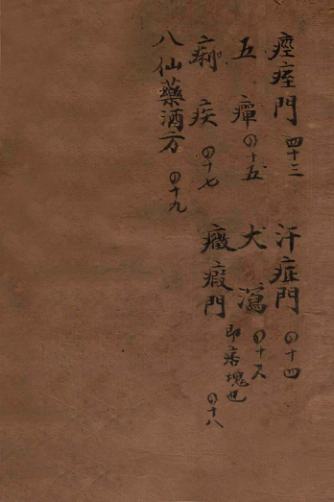 痙痓門 四十三
汗症門 四十四
五癉 四十五
瀉 四十六
痢疾 四十七
癥瘕門 即痞塊也 四十八
八仙藥酒方 四十九